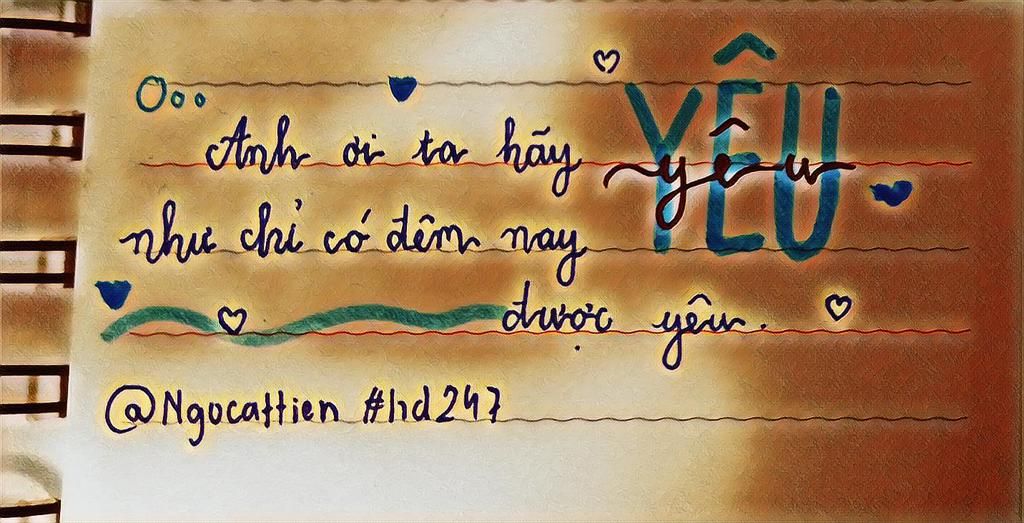 Ooo
Anh ơi ta hãy yêu YÊU
như chỉ có đêm nay
được yêu.
@Ngocattien #hd247